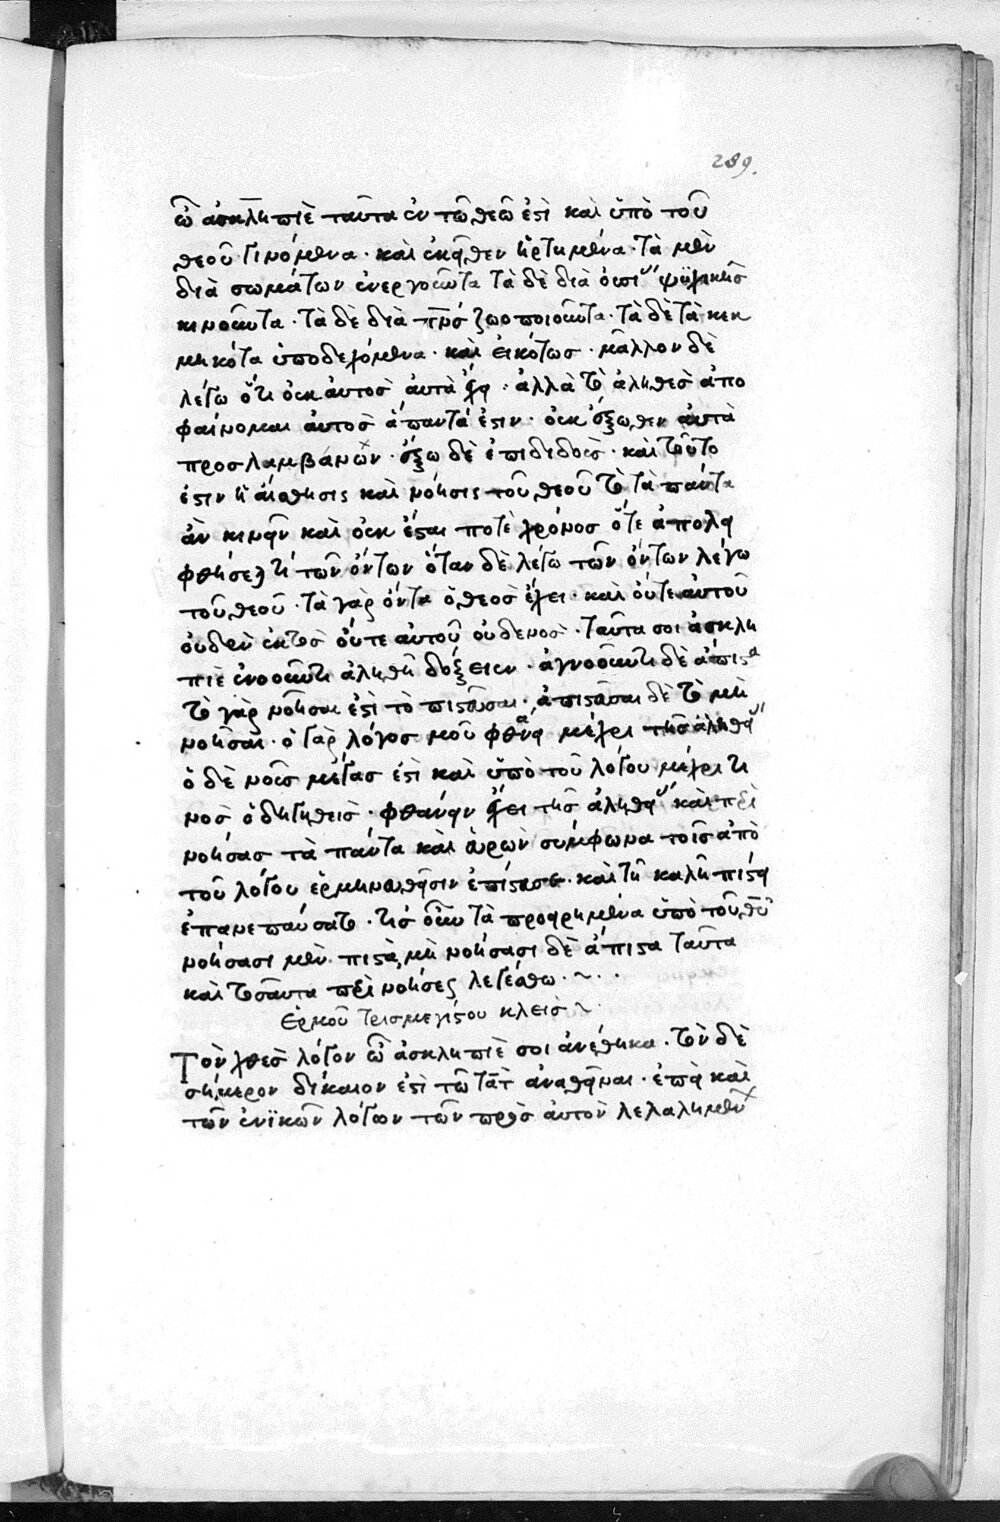 289.
ὦ ἀσκληπιὲ ταῦτα ἐν τῶ θεῶ ἐστὶ καὶ ὑπὸ τοῦ
θεοῦ γινόμενα· καὶ ἐκεῖθεν ἠρτημένα· τὰ μὲν
διὰ σωμάτων ἐνεργοῦντα τὰ δὲ διὰ οὐσι ψυχικῆσ
κινοῦντα· τὰ δὲ διὰ πνσ ζωοποιοῦντα· τὰ δὲ τὰ κεκ
μηκότα ὑποδεχόμενα· καὶ εἰκότωσ· μᾶλλον δὲ
λέγω ὅτι οὐκ αὐτοσ αὐτὰ ἔχει· ἀλλὰ τὸ ἀληθεσ ἀπο
φαίνομαι αὐτοσ ἅπαντά ἐστιν· οὐκ ἔξωθεν αὐτὰ
προσλαμβάνων· ἔξω δὲ ἐπιδιδοὺσ· καὶ τοῦτο
ἐστιν ἡ αἴσθησις καὶ νόησις τοῦ θεοῦ τὸ τὰ πάντα
ἀν κινεῖν καὶ οὐκ ἔσται ποτὲ χρόνοσ ὅτε ἀπολει
φθήσεται τὶ τῶν ὄντων ὅταν δὲ λέγω τῶν ὄντων λέγω
τοῦ θεοῦ· τὰ γὰρ ὄντα ὁ θεοσ ἔχει· καὶ οὔτε αὐτοῦ
οὐδὲν ἐκτὸσ οὔτε αὐτοῦ οὐδενοσ· ταῦτα σοι ἀσκλη
πιὲ ἐννοοῦντι ἀληθῆ δόξειεν· ἀγνοοῦντι δὲ ἄπιστα
τὸ γὰρ νοῆσαι ἐστὶ τὸ πιστεῦσαι· ἀπιστῆσαι δὲ τὸ μὴ
νοῆσαι· ὁ γὰρ λόγοσ μοῦ φθάνει μέχρι τῆσ ἀληθεί
ὁ δὲ νοῦσ μέγασ ἐστὶ καὶ ὑπὸ τοῦ λόγου μέχρι τι
νοσ ὁδηγηθεὶσ· φθάνειν ἔχει τῆσ ἀληθεί καὶ περὶ
νοήσασ τὰ πάντα καὶ εὑρὼν σύμφωνα τοῖσ ἀπὸ
τοῦ λόγου ἑρμηνευθεῖσιν ἐπίστευσε· καὶ τῆ καλῆ πίστει
ἐπανεπαύσατο· τοῖσ οὖν τὰ προειρημένα ὑπὸ τοῦ θῦ
νοήσασι μὲν πιστὰ, μὴ νοήσασι δὲ ἄπιστα ταῦτα
καὶ τοσαῦτα περὶ νοήσεως λεγέσθω ·~··
Ἑρμοῦ τρισμεγίστου κλεισ~·
Τὸν χθὲσ λόγον ὦ ἀσκληπιὲ σοι ἀνέθηκα· τὸν δὲ
σήμερον δίκαιον ἐστὶ τῶ τὰτ ἀναθεῖναι· ἐπεὶ καὶ
τῶν ἑνϊκῶν λόγων τῶν πρὸσ αὐτὸν λελαλημένων